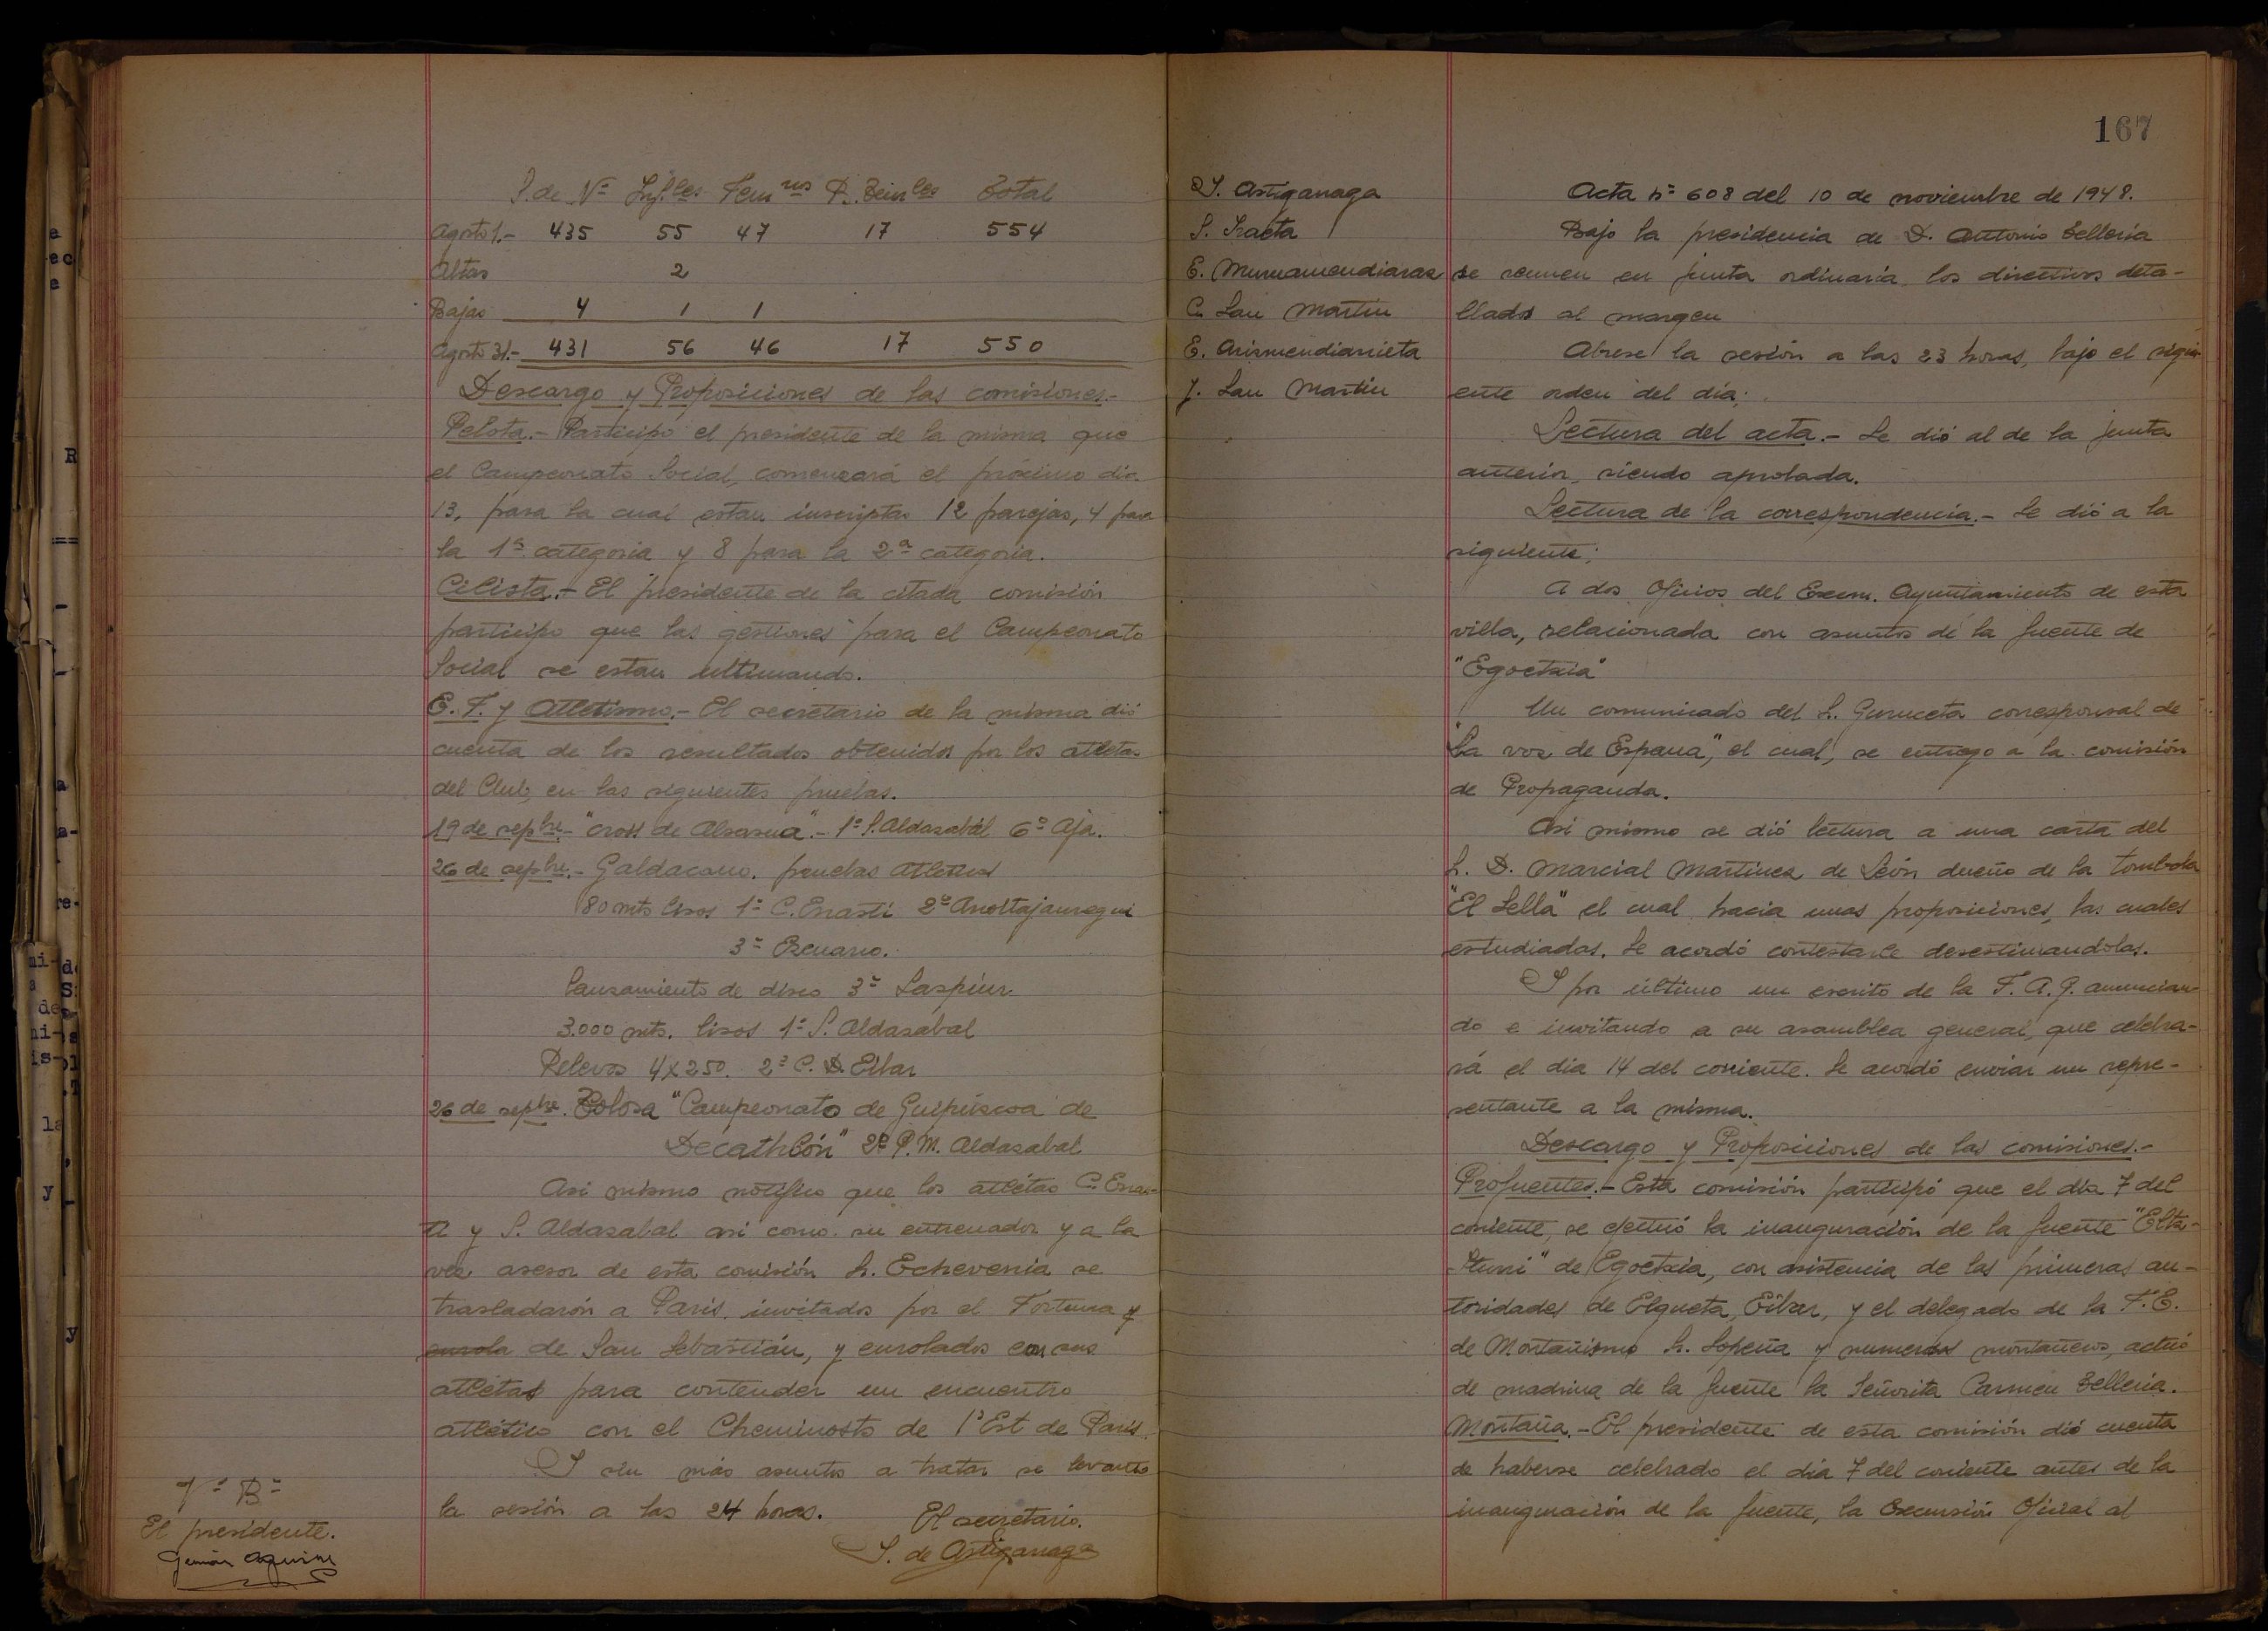 S. de Nº Inf.les Fem nos P. Tem les Total
Agosto 1.- 435 55 47 17 554
Altas 2
Bajas 4 1 1
Agosto 31.- 431 56 46 17 550
Descargo y Proposiciones de las comisiones.-
Pelota.- Participó el presidente de la misma que
el Campeonato Social, comenzará el próximo dia
13, para la cual estan inscriptas 12 parejas, 4 para
la 1ª categoria y 8 para la 2ª categoria.
Cilista.- El presidente de la citada comisión
participo que las gestiones para el Campeonato
Social se estan ultimando.
E. F. y Atletismo.- El secretario de la misma dió
cuenta de los resultados obtenidos por los atletas
del Club, en las siguientes pruebas.
19 de sepbre.- "Cross de Alsasua".- 1º S. Aldazabal 6º Aja.
26 de sepbre.- Galdacano. pruebas Atleticas
80 mts lisos 1º C. Erasti 2º Anoitajauregui
3º
Lanzamiento de disco 3º Laspiur
3.000 mts. lisos 1º S. Aldazabal
Relevos 4x250. 2º C. D. Eibar
26 de sepbre. Tolosa "Campeonato de Guipúzcoa de
Decathlón" 2º P. M. Aldazabal
Asi mismo notifico que los atlétas C. Eras-
ti y S. Aldazabal asi como su entrenador y a la
vez asesor de esta comisión Sr. Echeverria se
trasladarón a Paris invitados por el Fortuna y
de San Sebastián, y enrolados con sus
atlétas para contender un encuentro
atlético con el Cheminosts de l'Est de Paris.
I sin más asuntos a tratar se levanto
la sesión a las 24 horas.
El secretario.
S. de Astiganaga
Vº Bº
El presidente.
167
S. Astiganaga
S. Iraeta
E. Muruamendiaraz
C. San Martin
E. Arismendiarrieta
J. San Martin
Acta nº 608 del 10 de noviembre de 1948.
Bajo la presidencia de D. Antonio Telleria
se reunen en junta ordinaria los directivos deta-
llados al margen
Abrese la sesión a las 23 horas, bajo el sigui-
ente orden del dia:
Lectura del acta.- Se dió al de la junta
anterior, siendo aprobada.
Lectura de la correspondencia.- Se dió a la
siguiente:
A dos Oficios del Excm. Ayuntamiento de esta
villa, relacionada con asuntos de la fuente de
"Egoetxia"
Un comunicado del Sr. Guruceta corresponsal de
"La voz de España", el cual, se entrego a la comisión
de Propaganda.
Asi mismo se dió lectura a una carta del
Sr. D. Marcial Martinez de León dueño de la tombola
"El Sella" el cual hacia unas proposiciones, las cuales
estudiadas. Se acordó contestarle desestimandolas.
I por último un escrito de la F. A. G. anuncian-
do e invitando a su asamblea general, que celebra-
rá el dia 14 del corriente. Se acordó enviar un repre-
sentante a la misma.
Descargo y Proposiciones de las comisiones.-
Profuentes.- Esta comisión participó que el dia 7 del
corriente, se efectuó la inauguración de la fuente "Elta-
-Iturri" de Egoetxia, con asistencia de las primeras au-
toridades de Elgueta, Eibar, y el delegado de la F. E.
de Montañismo Sr. Sopeña y numerosos montañeros, actuó
de madrina de la fuente la Señorita Carmen Telleria.
Montaña.- El presidente de esta comisión dió cuenta
de haberse celebrado el dia 7 del corriente antes de la
inauguración de la fuente, la Excursión Oficial al